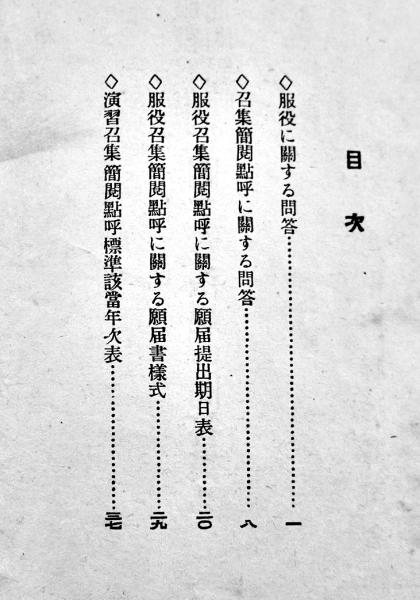 目次
◇服役に關する問答……一
◇召集簡閱點呼に關する問答……八
◇服役召集簡閱點呼に關する願届提出期日表……二〇
◇服役召集簡閱點呼に關する願届書樣式……二九
◇演習召集簡閱點呼標準該當年次表……三七